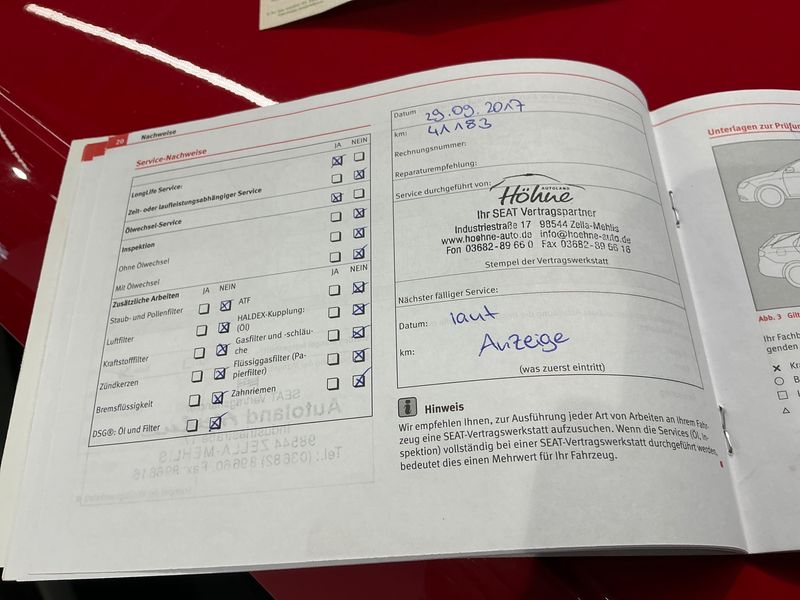 20 Nachweise
Service-Nachweise
JA NEIN
LongLife Service:
Zeit- oder laufleistungsabhängiger Service
Ölwechsel-Service
Inspektion
Ohne Ölwechsel
Mit Ölwechsel
Zusätzliche Arbeiten JA NEIN JA NEIN
Staub- und Pollenfilter ATF
Luftfilter HALDEX-Kupplung: (Öl)
Kraftstofffilter Gasfilter und -schläuche
Zündkerzen Flüssiggasfilter (Papierfilter)
Bremsflüssigkeit Zahnriemen
DSG®: Öl und Filter
Datum 29.09.2017
km: 41183
Rechnungsnummer:
Reparaturempfehlung:
Service durchgeführt von:
AUTOLAND
Höhne
Ihr SEAT Vertragspartner
Industriestraße 17 98544 Zella-Mehlis
www.hoehne-auto.de info@hoehne-auto.de
Fon 03682-89 66 0 Fax 03682-89 66 16
Stempel der Vertragswerkstatt
Nächster fälliger Service:
Datum: laut
km: Anzeige
(was zuerst eintritt)
i Hinweis
Wir empfehlen Ihnen, zur Ausführung jeder Art von Arbeiten an Ihrem Fahr-
zeug eine SEAT-Vertragswerkstatt aufzusuchen. Wenn die Services (Öl, In-
spektion) vollständig bei einer SEAT-Vertragswerkstatt durchgeführt werden,
bedeutet dies einen Mehrwert für Ihr Fahrzeug.
Unterlagen zur Prüfu
Abb. 3 Gilt
Ihr Fachb
genden
Kr
B